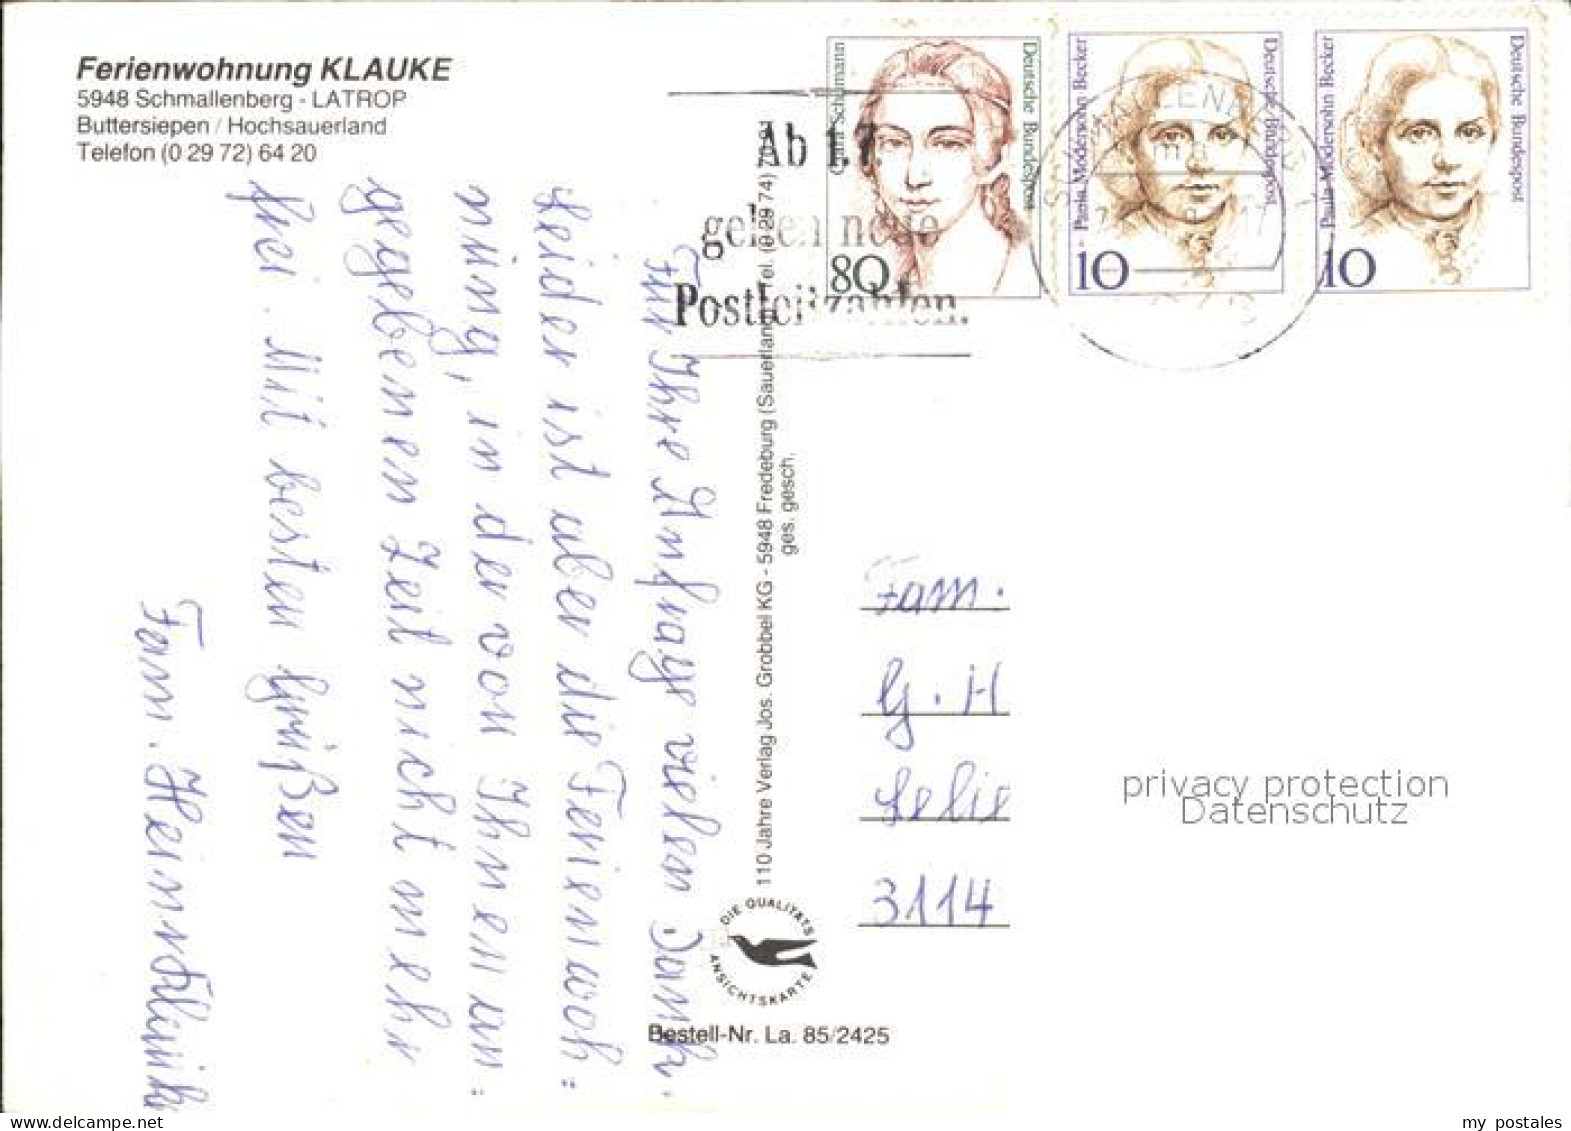 Ferienwohnung KLAUKE
5948 Schmallenberg - LATROP
Buttersiepen / Hochsauerland
Telefon (0 29 72) 64 20
Für Ihre Anfrage vielen Dank.
Leider ist aber die Ferienwoh=
nung, in der von Ihnen an=
gegebenen Zeit nicht mehr
frei. Mit besten Grüßen
Fam. Heinr. Klauke
110 Jahre Verlag Jos. Grobbel KG - 5948 Fredeburg (Sauerland) Tel. (0 29 74)
ges. gesch.
DIE QUALITÄTS
ANSICHTSKARTE
Bestell-Nr. La. 85/2425
Clara Schumann
Deutsche Bundespost
80
Paula Modersohn Becker
Deutsche Bundespost
10
Paula Modersohn Becker
Deutsche Bundespost
10
Ab 1.7.
gelten neue
Postleitzahlen.
SCHMALLENBERG
Fam.
G. H
3114
privacy protection
Datenschutz
my postales